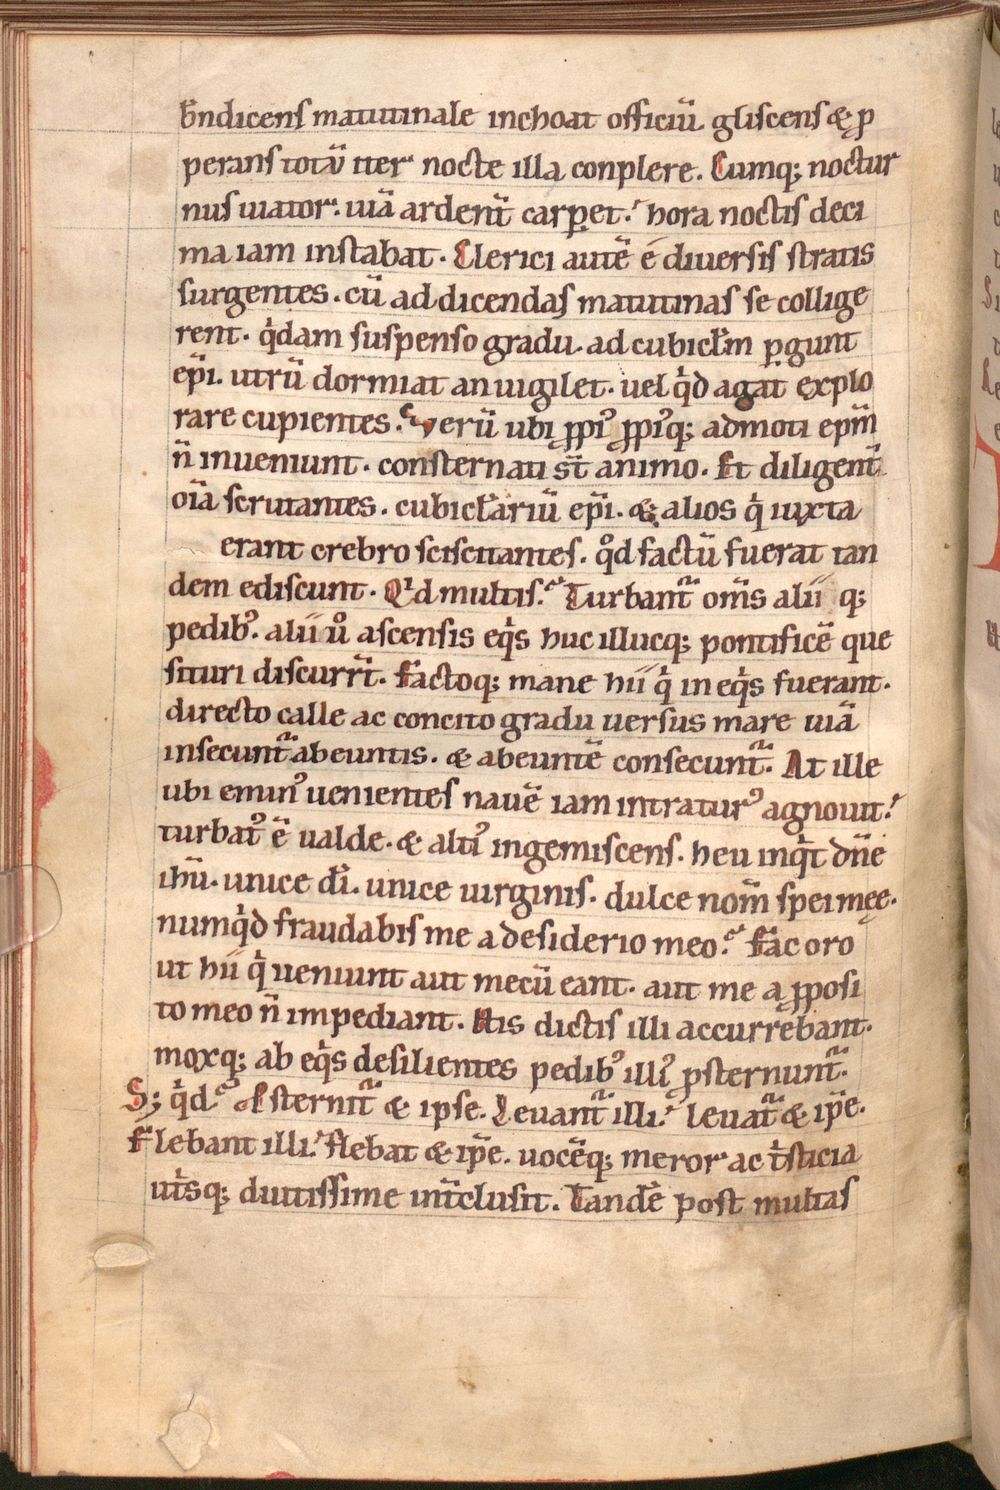 b̄ndicens matutinale inchoat officiū gliscens & ꝓ
perans totū iter nocte illa conplere. Cumq; noctur
nus uiator. uiā ardent̄ carpet. hora noctis deci
ma iam instabat. Clerici autē e diuersis stratis
surgentes. cū ad dicendas matutinas se collige
rent. qͥdam suspenso gradu. ad cubicłm ꝑgunt
ep̄i. utrū dormiat an uigilet. uel qͥd agat explo
rare cupientes. Verū ubi ꝓpiꝰ ꝓpiꝰq; admoti ep̄m
n̄ inueniunt. consternati st̄ animo. Et diligent̄
oīa scrutantes. cubicłariū ep̄i. & alios qͥ iuxta
erant crebro sciscitantes. qͦd factū fuerat tan
dem ediscunt. Qͥd multis? Turbant᷑ om̄s alii q;
pedibꝰ. alii uͦ ascensis eqͥs huc illucq; pontificē que
situri discurrt̄. Factoq; mane hii qͥ in eqͥs fuerant.
directo calle ac concito gradu uersus mare uiā
insecunt᷑ abeuntis. & abeuntē consecunt᷑. At ille
ubi eminꝰ uenientes nauē iam intraturꝰ agnouit.
turbatꝰ ē ualde. & altiꝰ ingemiscens. heu inqͥt dn̄e
ihū. unice dī. unice uirginis. dulce nom̄ spei meę.
numqͥd fraudabis me a desiderio meo? Fac oro
ut hii qͥ ueniunt aut mecū eant. aut me a ꝓposi
to meo n̄ impediant. His dictis illi accurrebant.
moxq; ab eqͥs desilientes pedibꝰ illiꝰ ꝓsternunt᷑.
S; qͥd? Psternit᷑ & ipse. Leuant᷑ illi. leuat᷑ & ip̄e.
Flebant illi. flebat & ip̄e. uocēq; meror ac tͥsticia
utͥsq; diutissime int̄clusit. Tandē post multas